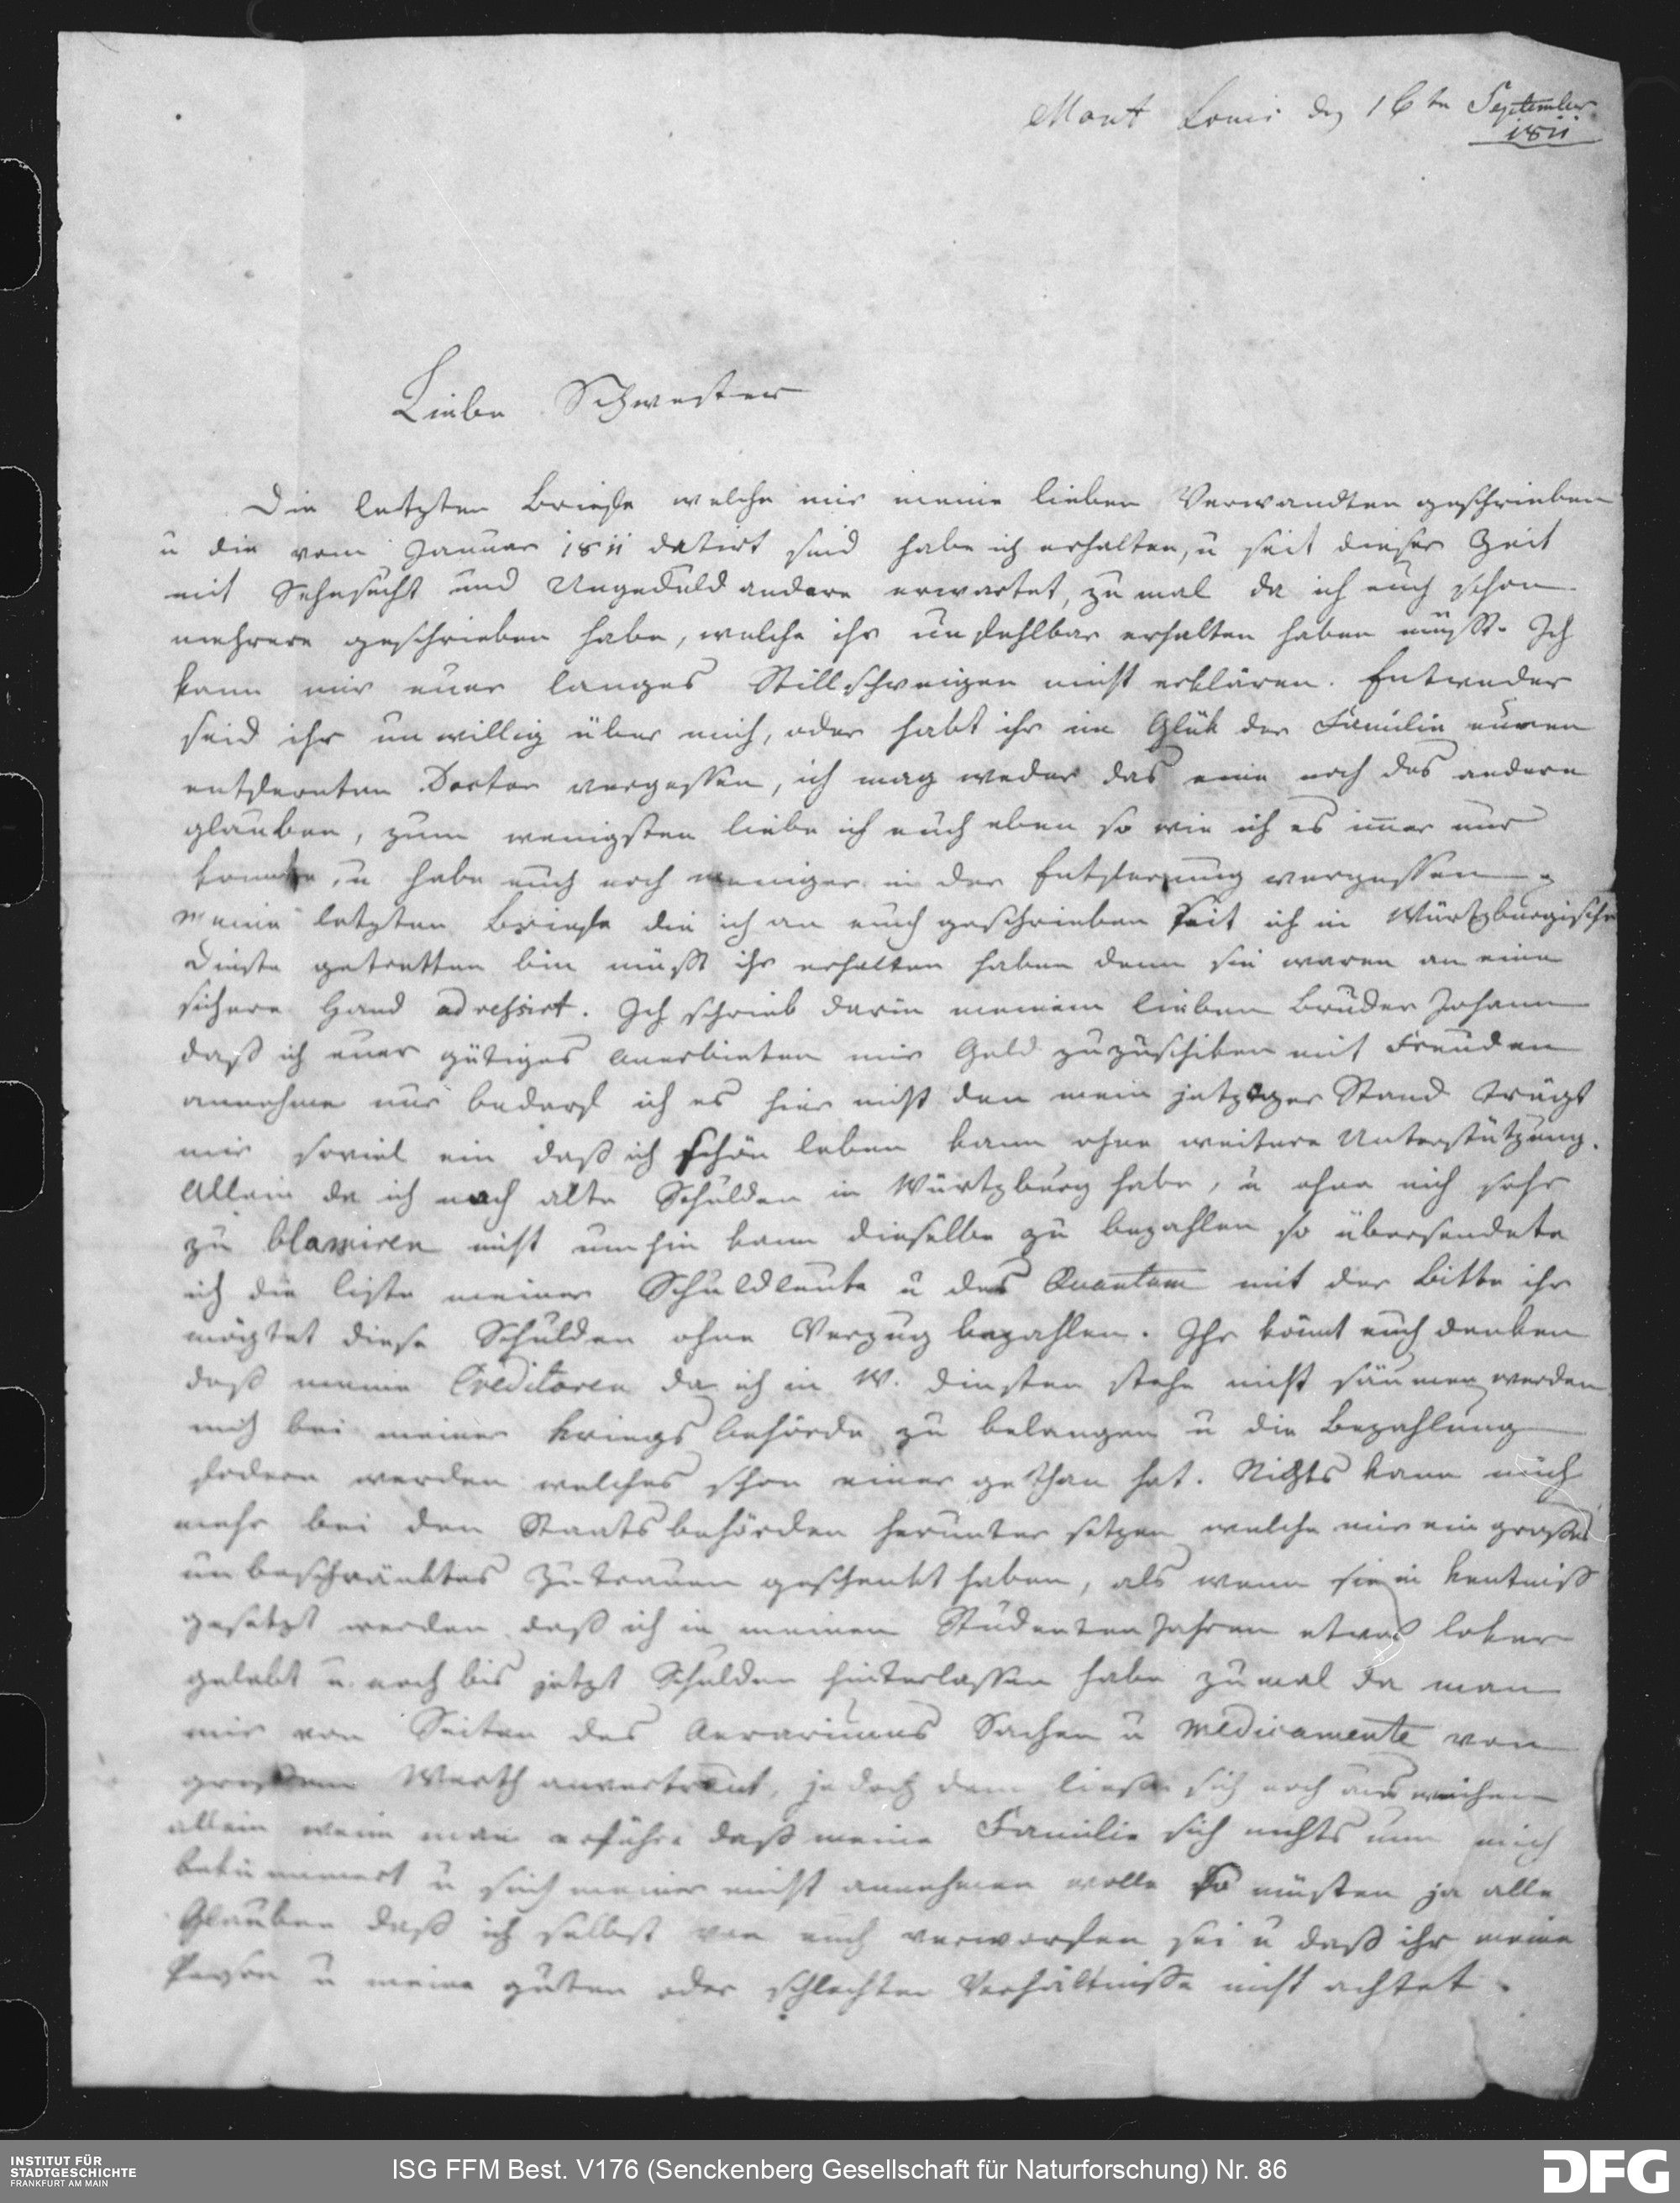 Mont Louis dg 16tn September
1811
Liebe Schwester
Die letzten Briefe welche mir meine lieben Verwandten geschrieben
u die vom Januar 1811 datirt sind habe ich erhalten, u seit dieser Zeit
mit Sehnsucht und Ungeduld andere erwartet, zumal da ich euch schon
mehrere geschrieben habe, welche ihr unfehlbar erhalten haben müßt. Ich
kann mir euer langes Stillschweigen nicht erklären. Entweder
seid ihr unwillig über mich, oder habt ihr im Glük der Familie euren
entfernten Doctor vergessen, ich mag weder das eine noch das andere
glauben, zum wenigsten liebe ich euch eben so wie ich es immer nur
konnte, u habe euch noch weniger in der Entfernung vergessen.
Meine letzten Briefe die ich an euch geschrieben seit ich in Würtzburgische
Dinste getretten bin müßt ihr erhalten haben denn sie waren an eine
sichere Hand adressirt. Ich schrieb darin meinem lieben Bruder Johann
daß ich euer gütiges Anerbieten mir Geld zuzuschiken mit Freuden
annehme nur bedarf ich es hier nicht den mein jetziger Stand trägt
mir soviel ein daß ich schön leben kann ohne weitere Unterstützung.
Allein da ich noch alte Schulden in Würtzburg habe, u ohne mich sehr
zu blamiren nicht umhin kann dieselbe zu bezahlen so übersendete
ich die liste meiner Schuldleute u das Quantum mit der Bitte ihr
mögtet diese Schulden ohne Verzug bezahlen. Ihr könnt euch denken
daß meine Creditoren da ich in W. dinsten stehe nicht säumen werden
mich bei meiner Kriegsbehörde zu belangen u die Bezahlung
fodern werden welches schon einer gethan hat. Nichts kann mich
mehr bei den Staatsbehörden herunter setzen welche mir ein großes
unbeschränktes Zutrauen geschenkt haben, als wenn sie in Kentniß
gesetzt werden daß ich in meinen Studentenjahren etwas loker
gelebt u noch bis jetzt Schulden hinterlassen habe zumal da man
mir von Seiten des Aerariums Sachen u Medicamente von
großem Werth anvertraut, jedoch dem ließe sich noch ausweichen
allein wenn man erführe daß meine Familie sich nichts um mich
bekümmert u sich meiner nicht annehmen wolle so müsten ja alle
Glauben daß ich selbst von euch verworfen sei u daß ihr meine
Person u meine guten oder schlechten Verhältnisse nicht achtet.
INSTITUT FÜR
STADTGESCHICHTE
FRANKFURT AM MAIN
ISG FFM Best. V176 (Senckenberg Gesellschaft für Naturforschung) Nr. 86
DFG